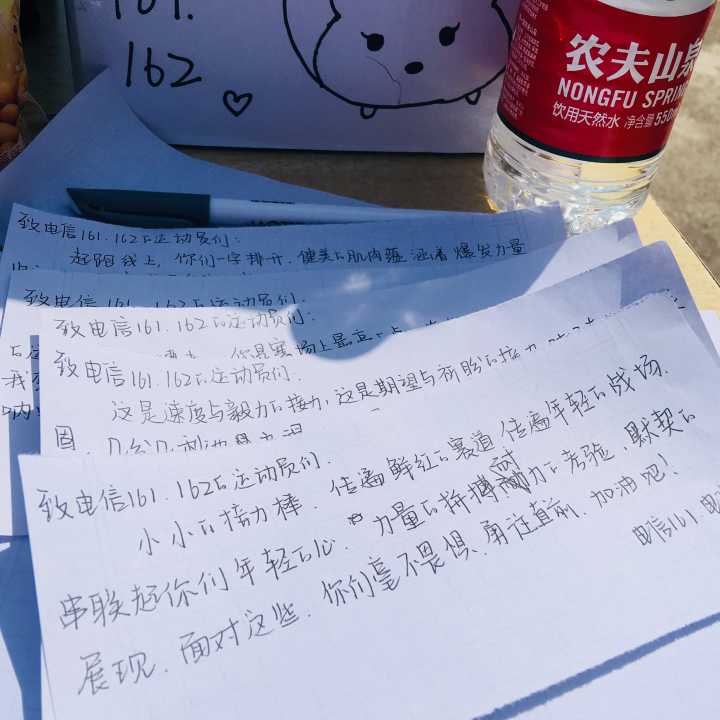 161.
162
农夫山泉
NONGFU SPRIN
饮用天然水 净含量550m
致电信161.162的运动员们:
起跑线上,你们一字排开,健美的肌肉蕴涵着爆发力量
致电信161.162的运动员们:
致电信161.162的运动员们:
你是赛场上最
致电信161.162的运动员们.
这是速度与毅力的接力,这是期望与祈盼的接力
致电信161.162的运动员们.
小小的接力棒.传遍鲜红的赛道.传遍年轻的战场.
串联起你们年轻的心.力量的拼搏耐力的考验.默契的
展现.面对这些.你们毫不畏惧.勇往直前.加油吧!
电信161.电